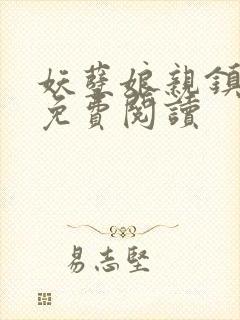 妖孽娘親鎮
免費閱讀
易志堅